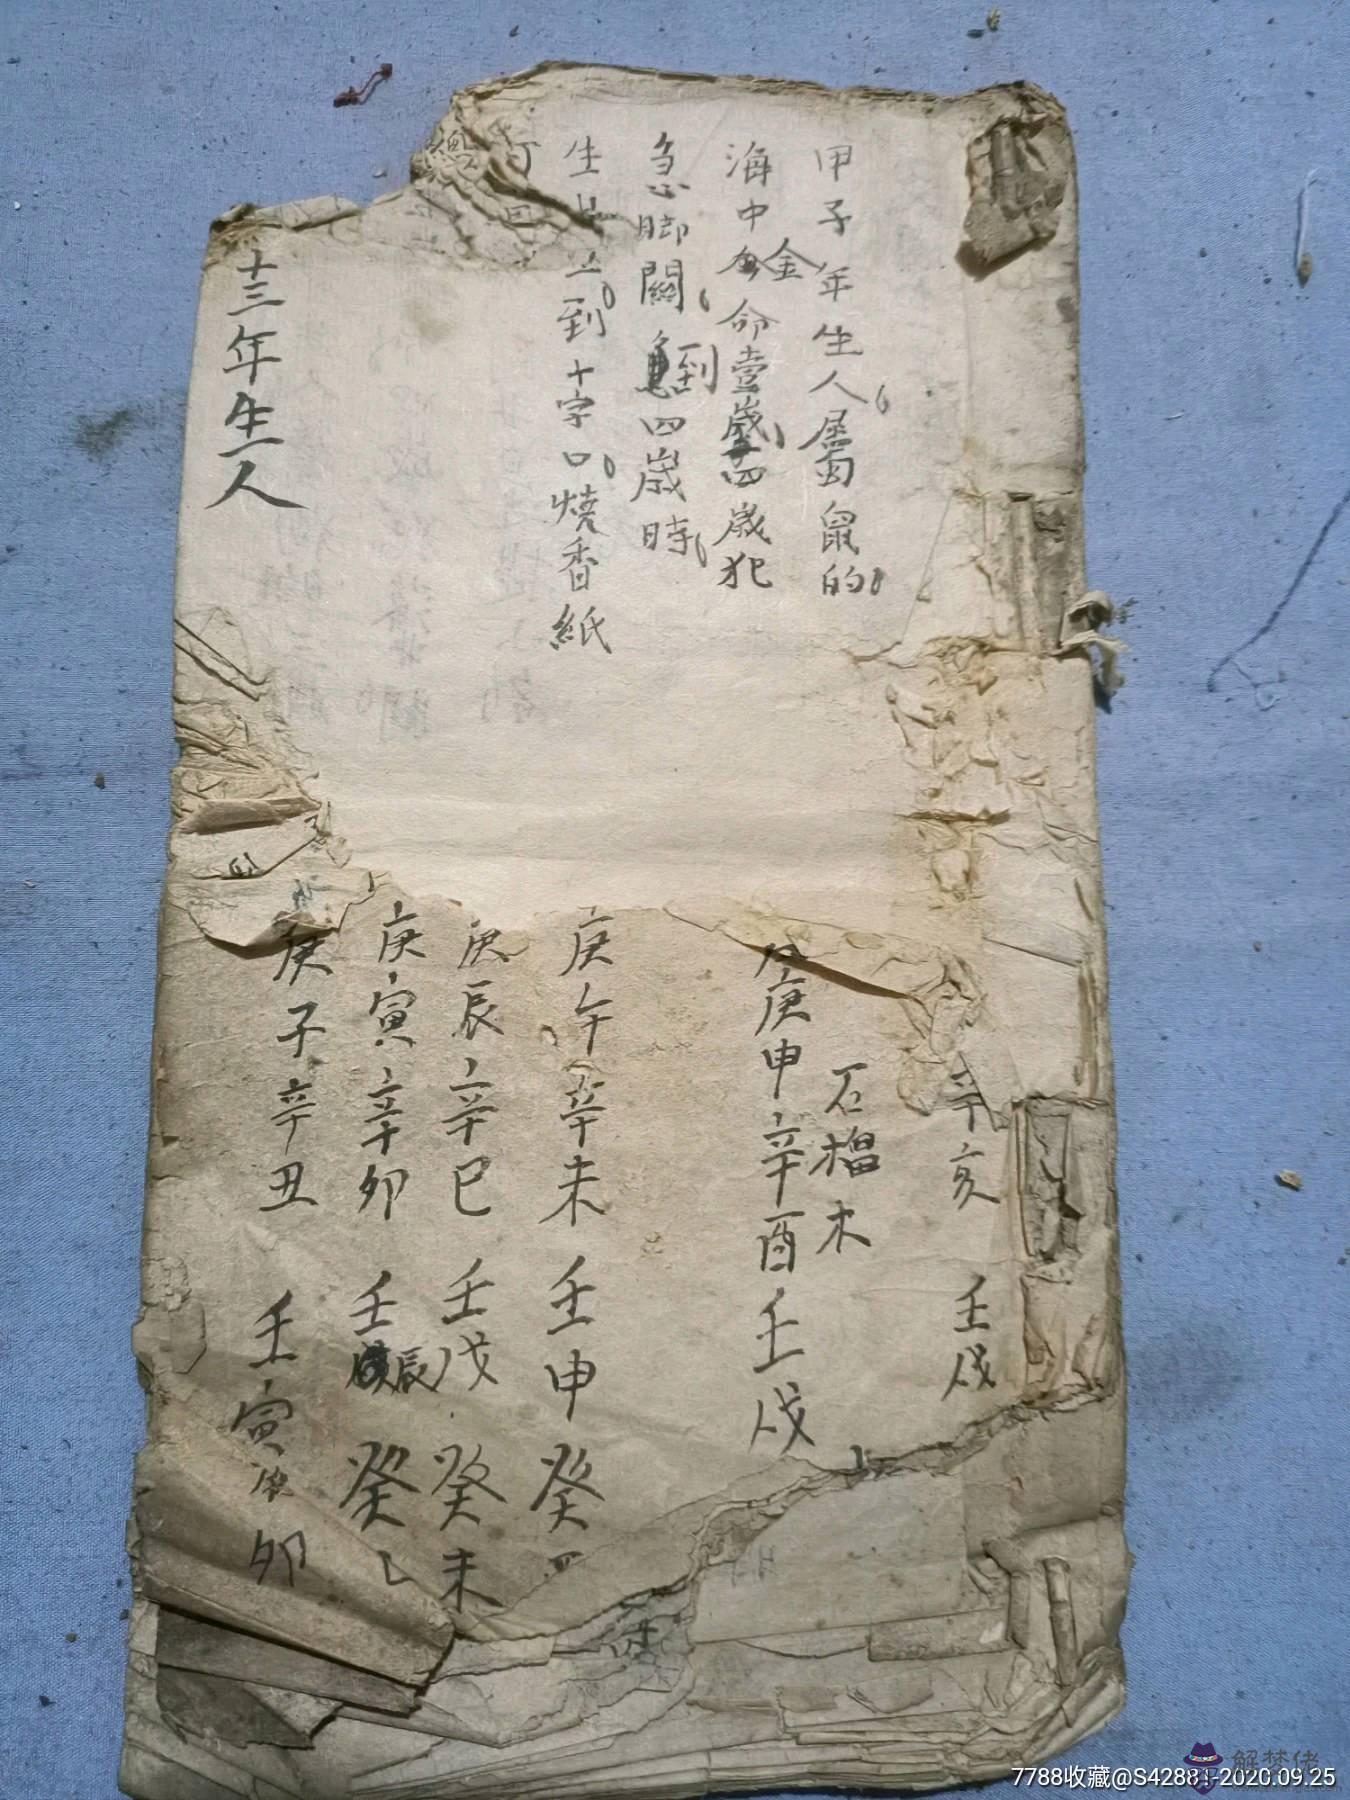 甲子年生人屬鼠的
海中金命壹歲四歲犯
急脚關到四歲時
生
到十字口燒香紙
十三年生人
辛亥 壬戌
石榴木
庚申辛酉壬戌
庚午辛未壬申癸
庚辰辛巳壬戌癸未
庚寅辛卯壬辰癸
庚子辛丑壬寅卯
解梦佬
7788收藏@S42881-2020.09.25